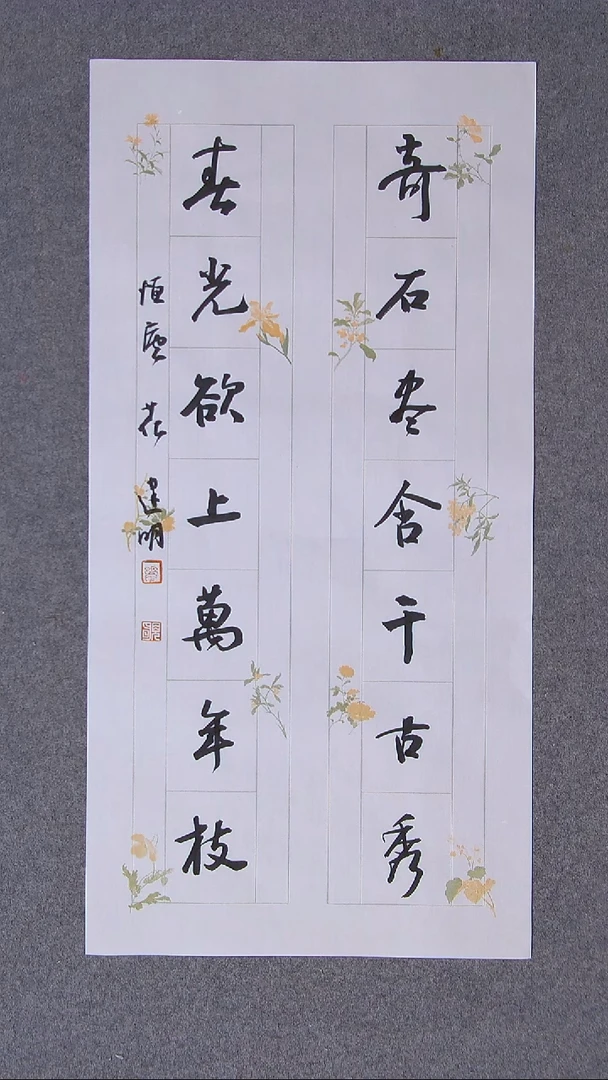 奇石尽含千古秀
春光欲上萬年枝
建明